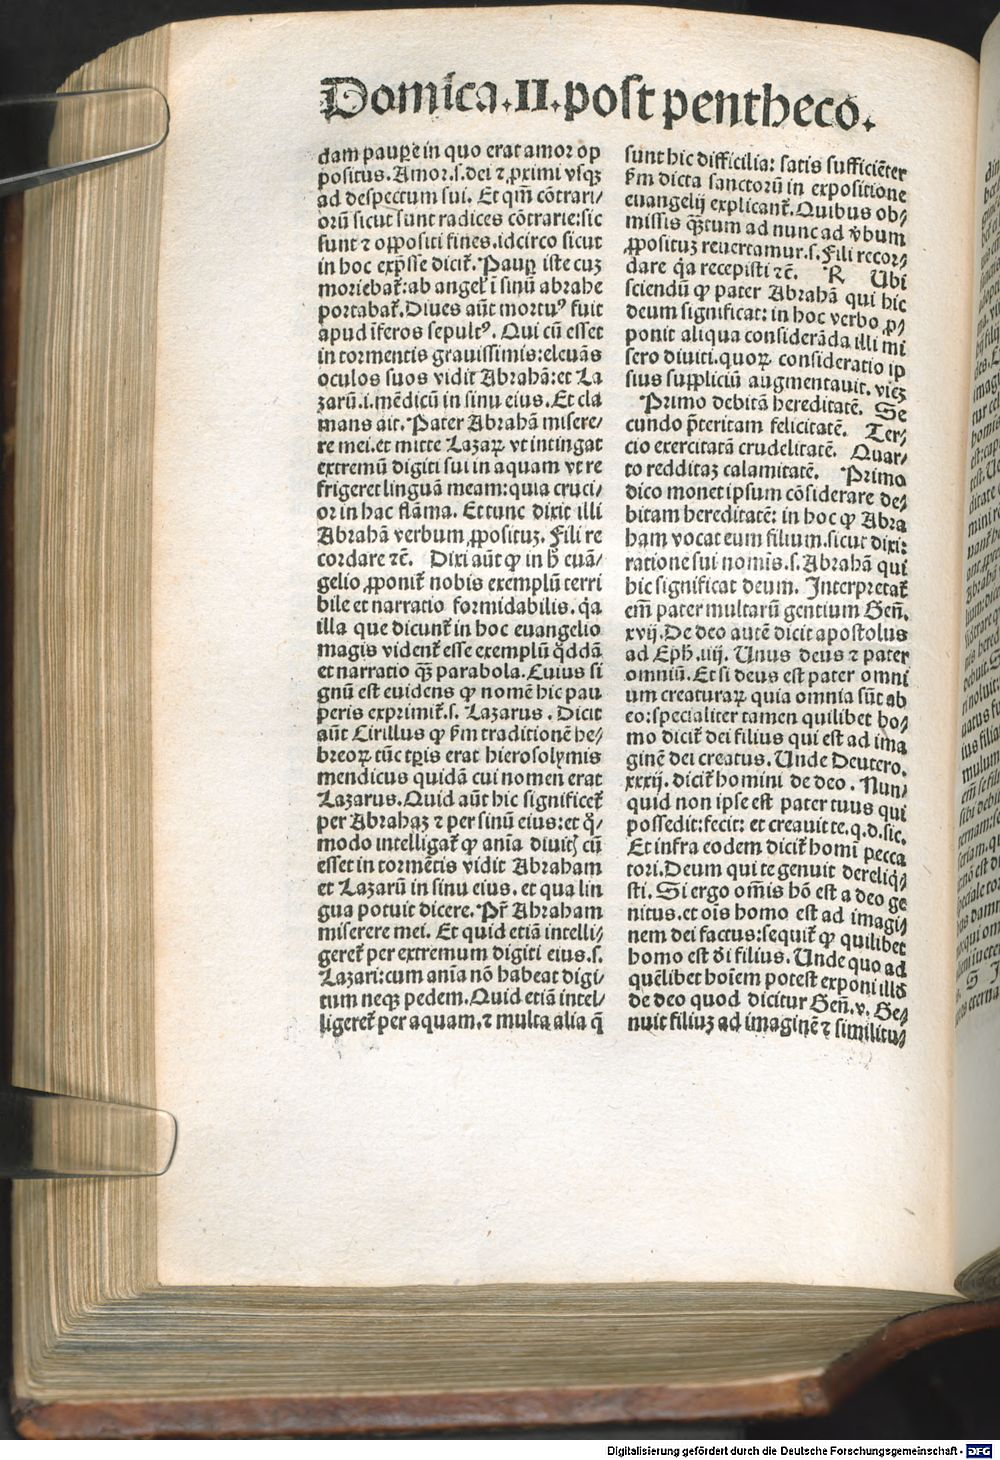 Domīca.II.post pentheco.
dam paupe in quo erat amor op
positus. Amor.s.dei ⁊ ꝓximi vsqꝫ
ad despectum sui. Et qm̄ cōtrari/
orū sicut sunt radices cōtrarie:sic
sunt ⁊ oppositi fines.idcirco sicut
in hoc exp̄sse dicit᷑. Paup iste cuꝫ
moriebat᷑:ab angeł ī sinū abrahe
portabat᷑.Diues aūt mortuꝰ fuit
apud īferos sepultꝰ. Qui cū esset
in tormentis grauissimis:eleuās
oculos suos vidit Abrahā:et La
zarū.i.mēdicū in sinu eius. Et cla
mans ait. Pater Abrahā misere/
re mei.et mitte Lazaꝝ vt intingat
extremū digiti sui in aquam vt re
frigeret linguā meam:quia cruci/
or in hac flāma. Et tunc dixit illi
Abrahā verbum ꝓposituꝫ. Fili re
cordare ⁊c̄. Dixi aūt ꝙ in h̵ euā/
gelio ꝓponit᷑ nobis exemplū terri
bile et narratio formidabilis. q̇a
illa que dicunt᷑ in hoc euangelio
magis vident᷑ esse exemplū q̇ddā
et narratio qꝫ̄ parabola. Cuius si
gnū est euidens ꝙ nomē hic pau
peris exprimit᷑.s. Lazarus. Dicit
aūt Cirillus ꝙ ẜm traditionē he/
breoꝝ tūc tꝑis erat hierosolymis
mendicus quidā cui nomen erat
Lazarus. Quid aūt hic significet᷑
per Abrahaꝫ ⁊ per sinū eius:et q̊/
modo intelligat᷑ ꝙ anīa diuitꝭ cū
esset in tormētis vidit Abraham
et Lazarū in sinu eius. et qua lin
gua potuit dicere. Pr̄ Abraham
miserere mei. Et quid etiā intelli/
geret᷑ per extremum digiti eius.s.
Lazari:cum anīa nō habeat digi/
tum neqꝫ pedem. Quid etiā intel/
ligeret᷑ per aquam.⁊ multa alia q̄
sunt hic difficilia: satis sufficiēter
ẜm dicta sanctorū in expositione
euangelij explicant᷑. Quibus ob/
missis qꝫ̄tum ad nunc ad v̊bum
ꝓposituꝫ reuertamur.s. Fili recor/
dare q̇a recepisti ⁊c̄. R Ubi
sciendū ꝙ pater Abrahā qui hic
deum significat: in hoc verbo ꝓ/
ponit aliqua considerāda illi mi
sero diuiti.quoꝝ consideratio ip
sius suppliciū augmentauit. vieꝫ
Primo debitā hereditatē. Se
cundo p̄teritam felicitatē. Ter/
cio exercitatā crudelitatē. Quar/
to redditaꝫ calamitatē. Primo
dico monet ipsum cōsiderare de/
bitam hereditatē: in hoc ꝙ Abra
ham vocat eum filium.sicut dixi:
ratione sui nomīs.s. Abrahā qui
hic significat deum. Interpretat᷑
em̄ pater multarū gentium Geñ.
xvij. De deo autē dicit apostolus
ad Eph̄. iiij. Unus deus ⁊ pater
omniū. Et si deus est pater omni
um creaturaꝝ quia omnia sūt ab
eo:specialiter tamen quilibet ho/
mo dicit᷑ dei filius qui est ad ima
ginē dei creatus. Unde Deutero.
xxxij. dicit᷑ homini de deo. Nun/
quid non ipse est pater tuus qui
possedit:fecit: et creauit te.q.d.sic.
Et infra eodem dicit᷑ homī pecca
tori. Deum qui te genuit dereliq̇/
sti. Si ergo om̄is hō est a deo ge
nitus.et oīs homo est ad imagi/
nem dei factus:sequit᷑ ꝙ quilibet
homo est d̄i filius. Unde quo ad
quēlibet hoīem potest exponi illđ
de deo quod dicitur Geñ.v. Ge/
nuit filiuꝫ ad imaginē ⁊ similitu/
Digitalisierung gefördert durch die Deutsche Forschungsgemeinschaft - DFG